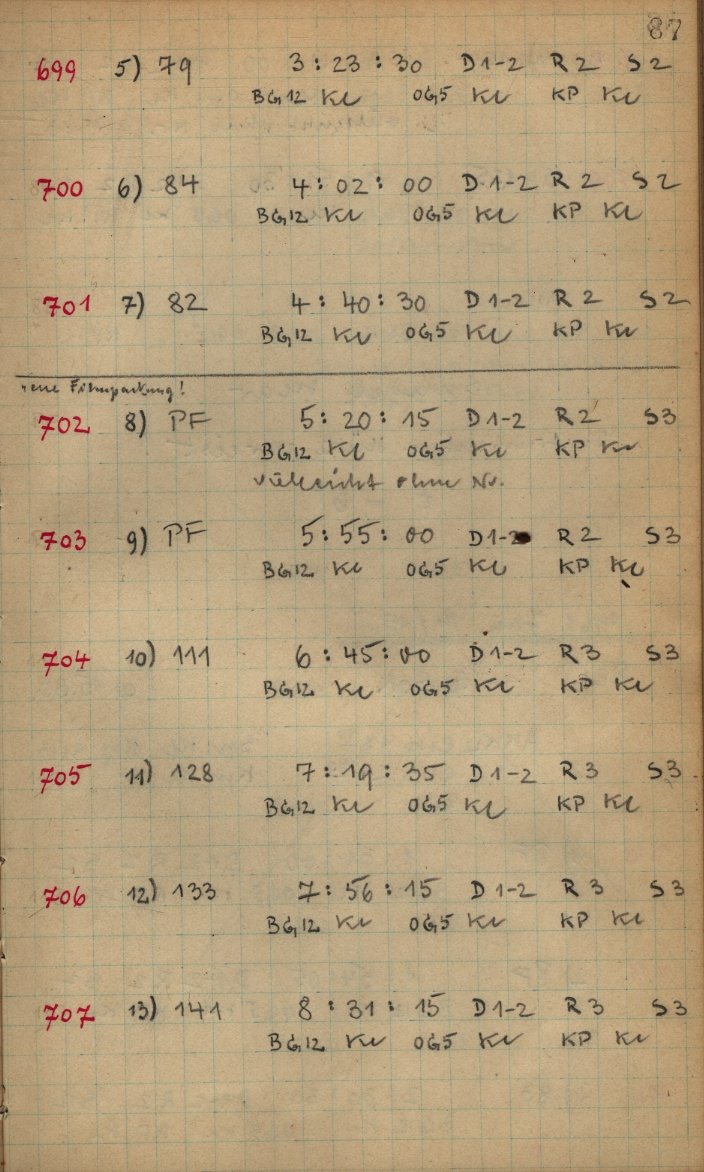 87
699 5) 79 3 : 23 : 30 D 1-2 R 2 S 2
BG 12 Kl OG 5 Kl KP Kl
700 6) 84 4 : 02 : 00 D 1-2 R 2 S 2
BG 12 Kl OG 5 Kl KP Kl
701 7) 82 4 : 40 : 30 D 1-2 R 2 S 2
BG 12 Kl OG 5 Kl KP Kl
neue Filmpackung!
702 8) PF 5 : 20 : 15 D 1-2 R 2 S 3
BG 12 Kl OG 5 Kl KP Kl
vielleicht ohne Nr.
703 9) PF 5 : 55 : 00 D 1-2 R 2 S 3
BG 12 Kl OG 5 Kl KP Kl
704 10) 111 6 : 45 : 00 D 1-2 R 3 S 3
BG 12 Kl OG 5 Kl KP Kl
705 11) 128 7 : 19 : 35 D 1-2 R 3 S 3
BG 12 Kl OG 5 Kl KP Kl
706 12) 133 7 : 56 : 15 D 1-2 R 3 S 3
BG 12 Kl OG 5 Kl KP Kl
707 13) 141 8 : 31 : 15 D 1-2 R 3 S 3
BG 12 Kl OG 5 Kl KP Kl